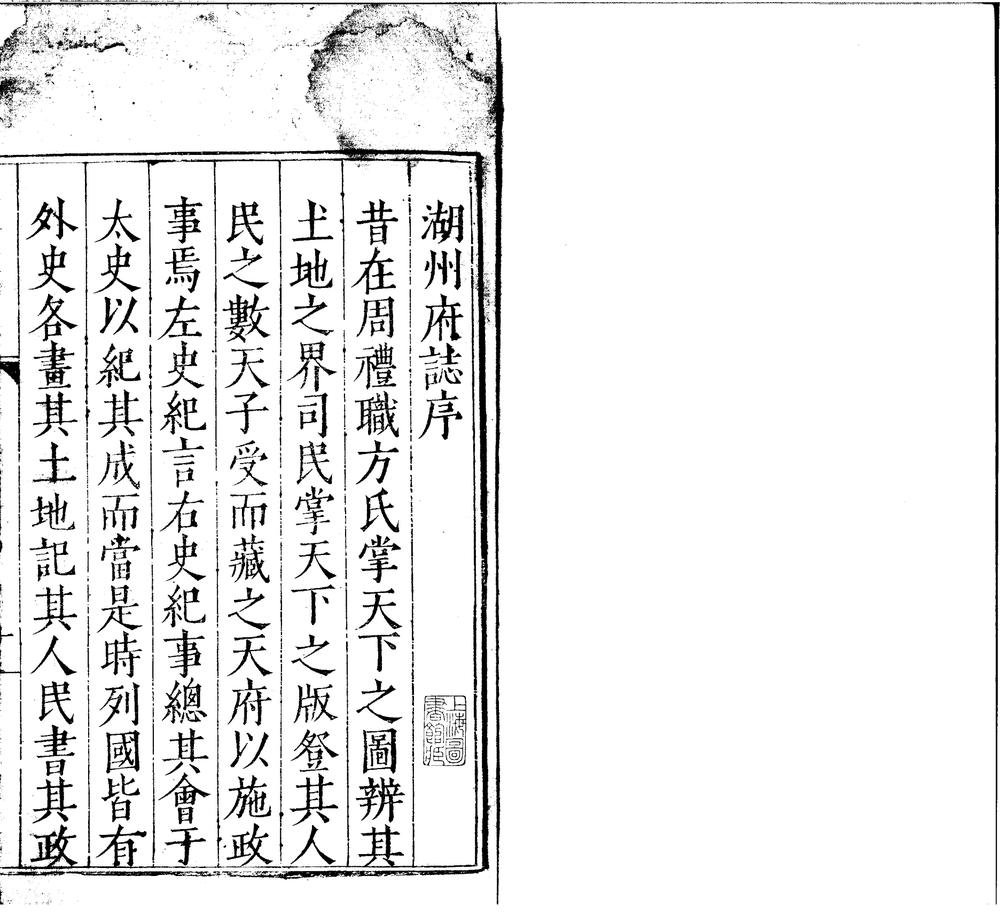 湖州府誌序
昔在周禮職方氏掌天下之圖辨其
土地之界司民掌天下之版登其人
民之數天子受而藏之天府以施政
事焉左史紀言右史紀事總其會于
太史以紀其成而當是時列國皆有
外史各畫其土地記其人民書其政
上海圖
書館藏